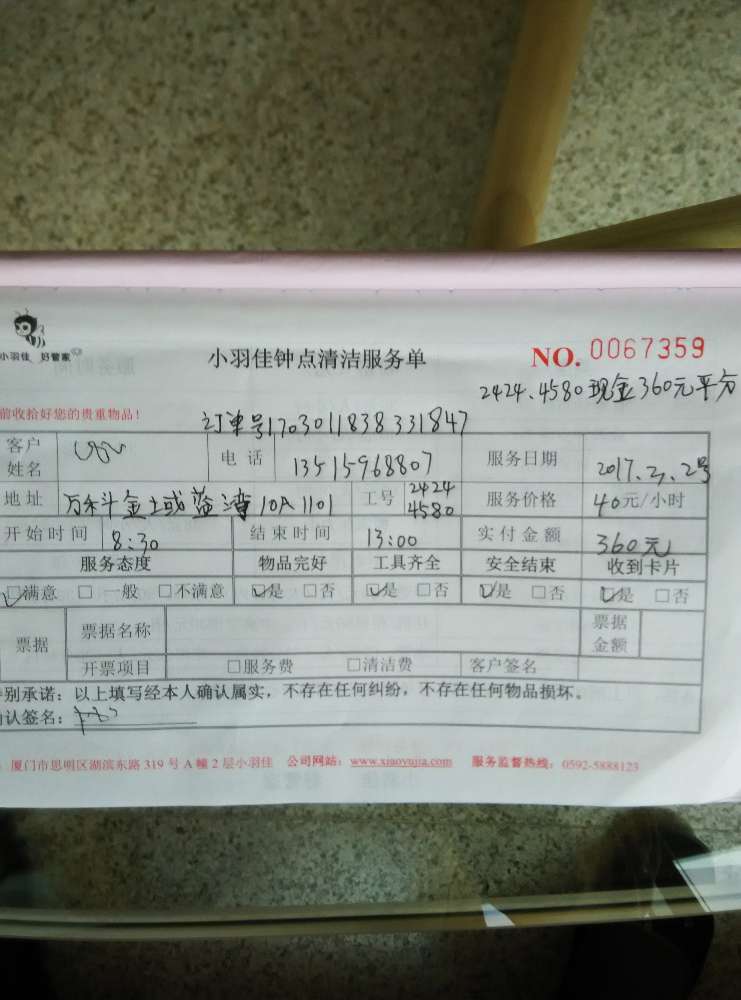 小羽佳 好管家
小羽佳钟点清洁服务单
NO. 0067359
2424.4580现金360元平方
前收拾好您的贵重物品！
订单号1703011838331847
客户姓名 电话 13515968807 服务日期 2017.3.2号
地址 万科金域蓝湾10A1101 工号 2424 4580 服务价格 40元/小时
开始时间 8:30 结束时间 13:00 实付金额 360元
服务态度 物品完好 工具齐全 安全结束 收到卡片
☑满意 □一般 □不满意 ☑是 □否 ☑是 □否 ☑是 □否 ☑是 □否
票据 票据名称 票据金额
开票项目 □服务费 □清洁费 客户签名
别承诺：以上填写经本人确认属实，不存在任何纠纷，不存在任何物品损坏。
认签名：
厦门市思明区湖滨东路 319 号 A 幢 2 层小羽佳 公司网站：www.xiaoyujia.com 服务监督热线：0592-5888123